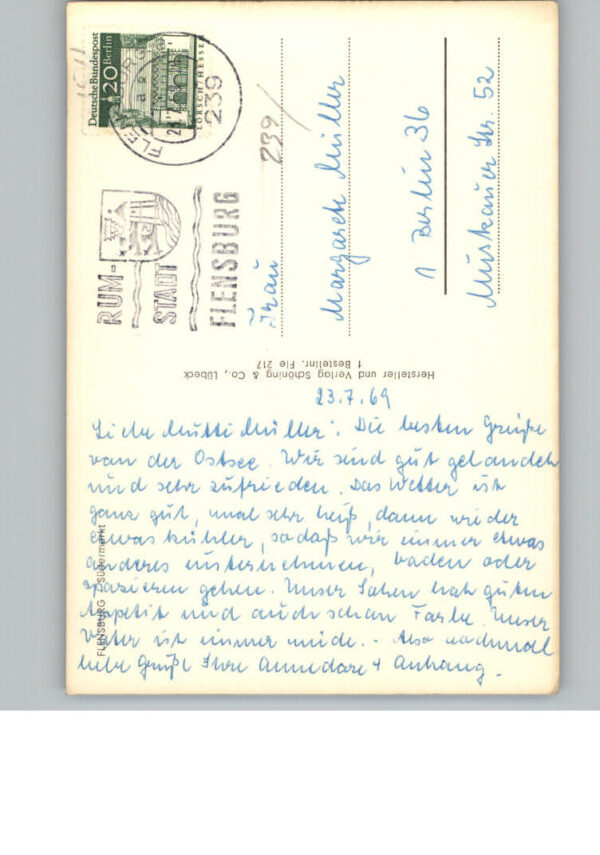 Deutsche Bundespost
Berlin
20
LORSCH/HESSEN
FLENSBURG
239
RUM-
STADT
FLENSBURG
239/
Frau
Margarete Müller
1 Berlin 36
Muskauer Str. 52
Hersteller und Verlag Schöning & Co., Lübeck
1 Bestellnr. Fle 217
FLENSBURG Südermarkt
23.7.69
Liebe Mutti Müller! Die besten Grüße
von der Ostsee. Wir sind gut gelandet
und sehr zufrieden. Das Wetter ist
ganz gut, mal sehr heiß, dann wieder
etwas kühler, sodaß wir immer etwas
anderes unternehmen, baden oder
spazieren gehen. Unser Sohn hat guten
Appetit und auch schon Farbe. Unser
Vater ist immer müde. - Also nochmal
liebe Grüße Ihre Annedore + Anhang.